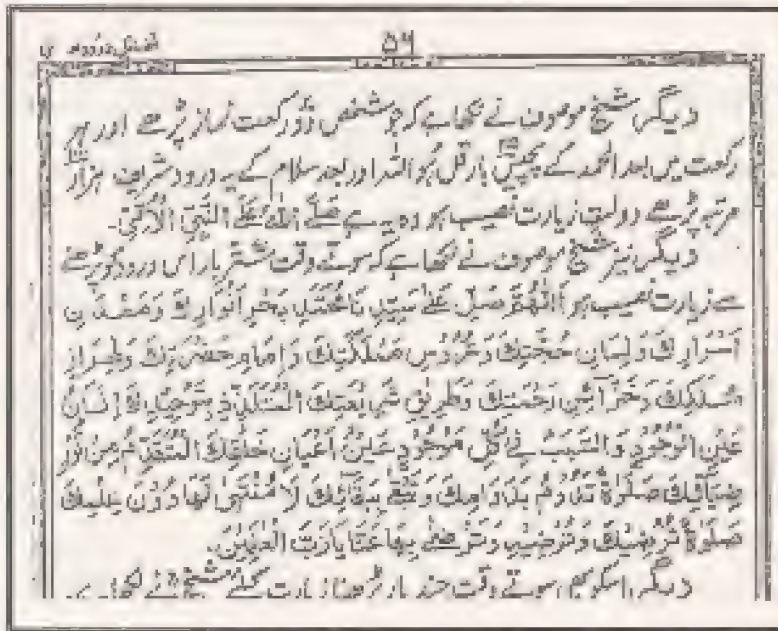 فضائل درود ۵۶
دیگر شیخ موصوف نے لکھا ہے کہ جو شخص دو رکعت نماز پڑھے اور ہر
رکعت میں بعد الحمد کے پچیس بار قل ہو اللہ اور بعد سلام کے یہ درود شریف ہزار
مرتبہ پڑھے دولت زیارت نصیب ہو وہ یہ ہے صَلَّى اللهُ عَلَى النَّبِيِّ الْأُمِّيِّ۔
دیگر نیز شیخ موصوف نے لکھا ہے کہ سوتے وقت ستر بار اس درود کو پڑھنے
سے زیارت نصیب ہو اَللّٰهُمَّ صَلِّ عَلٰى سَيِّدِنَا مُحَمَّدٍ بَحْرِ اَنْوَارِكَ وَمَعْدِنِ
اَسْرَارِكَ وَلِسَانِ حُجَّتِكَ وَعَرُوْسِ مَمْلَكَتِكَ وَاِمَامِ حَضْرَتِكَ وَطِرَازِ
مُلْكِكَ وَخَزَآئِنِ رَحْمَتِكَ وَطَرِيْقِ شَرِيْعَتِكَ الْمُتَلَذِّذِ بِتَوْحِيْدِكَ اِنْسَانِ
عَيْنِ الْوُجُوْدِ وَالسَّبَبِ فِيْ كُلِّ مَوْجُوْدٍ عَيْنِ اَعْيَانِ خَلْقِكَ الْمُتَقَدِّمِ مِنْ نُّوْرِ
ضِيَآئِكَ صَلٰوةً تَدُوْمُ بِدَوَامِكَ وَتَبْقٰى بِبَقَآئِكَ لَا مُنْتَهٰى لَهَا دُوْنَ عِلْمِكَ
صَلٰوةً تُرْضِيْكَ وَتُرْضِيْهِ وَتَرْضٰى بِهَا عَنَّا يَا رَبَّ الْعٰلَمِيْنَ۔
دیگر اس کو بھی سوتے وقت چند بار پڑھنا زیارت کیلئے شیخ نے لکھا ہے۔